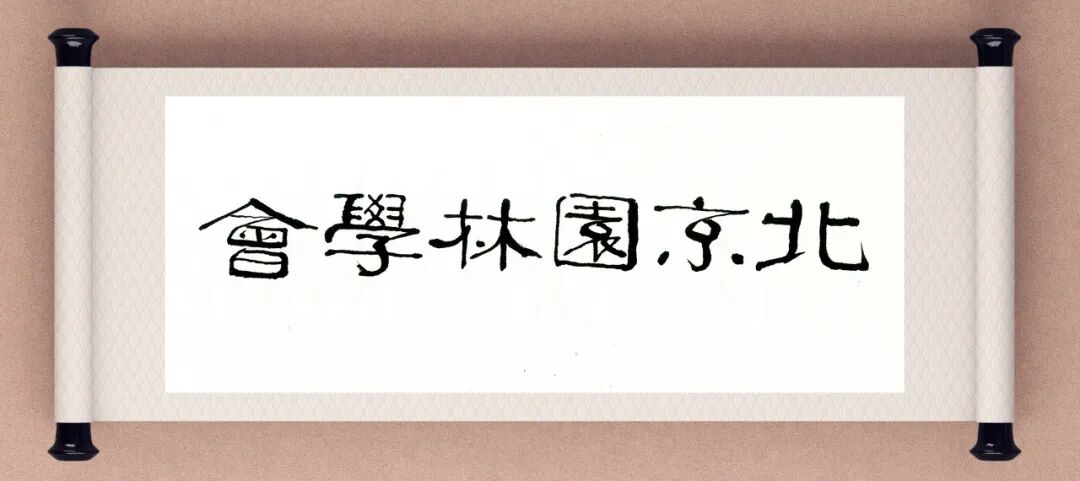 北京園林學會